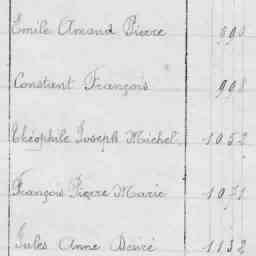 Emile Amand Pierre 590
Constant François 998
Théophile Joseph Michel 1052
François Pierre Marie 1071
Jules Anne Désiré 1132